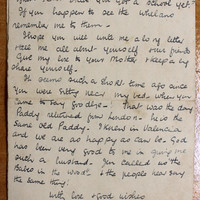 you got a school yet?
If you happen to see the Wheelans
remember me to them.
I hope you will write me a long letter
tell me all about yourself your friends
Give my love to your Mother & keep a big
share yourself.
It seems such a short time ago since
you were sitting near my bed. When you
came to say Goodbye. That was the day
Paddy returned from London. he is the
Same old Paddy. I knew in Valencia
and we are as happy as can be. God
has been very good to me in giving me
such a husband. Jen called us the
Babes in the Wood & the people here say
the same thing.
With love & Good wishes